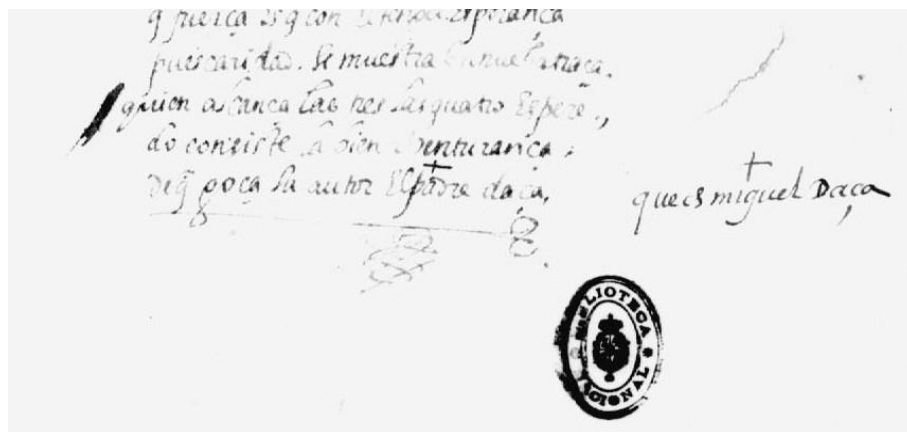 q fuerça es q con defensa esperança
pues caridad. Se muestra traça.
quien alcança las tres las quatro Espere.,
do consiste la bien Venturança.
De q̃ goça su autor El padre daça,
que es miguel Daça
BIBLIOTECA NACIONAL